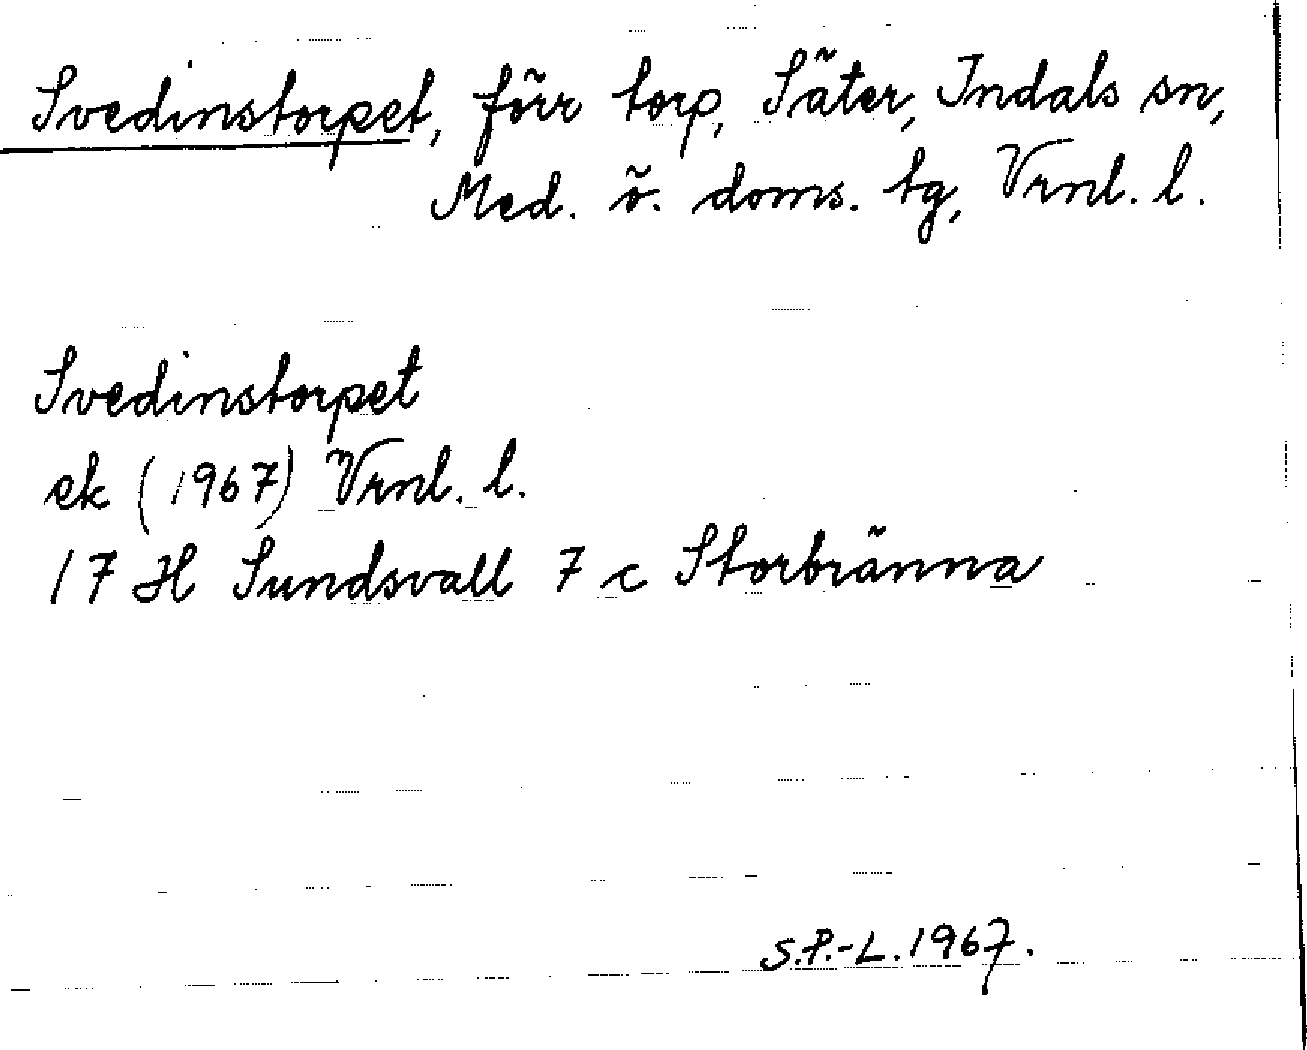 Svedinstorpet, förr torp, Säter, Indals sn,
Med. ö. doms. tg, Vrnl. l.
Svedinstorpet
ek (1967) Vrnl. l.
17 H Sundsvall 7 c Storbränna
S.P.-L. 1967.